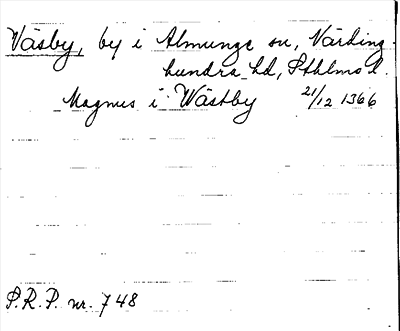 Väsby, by i Almunge sn, Närding-
hundra hd, Sthlms l.
Magnus i Wästby 21/12 1366
S.R.P. nr. 748